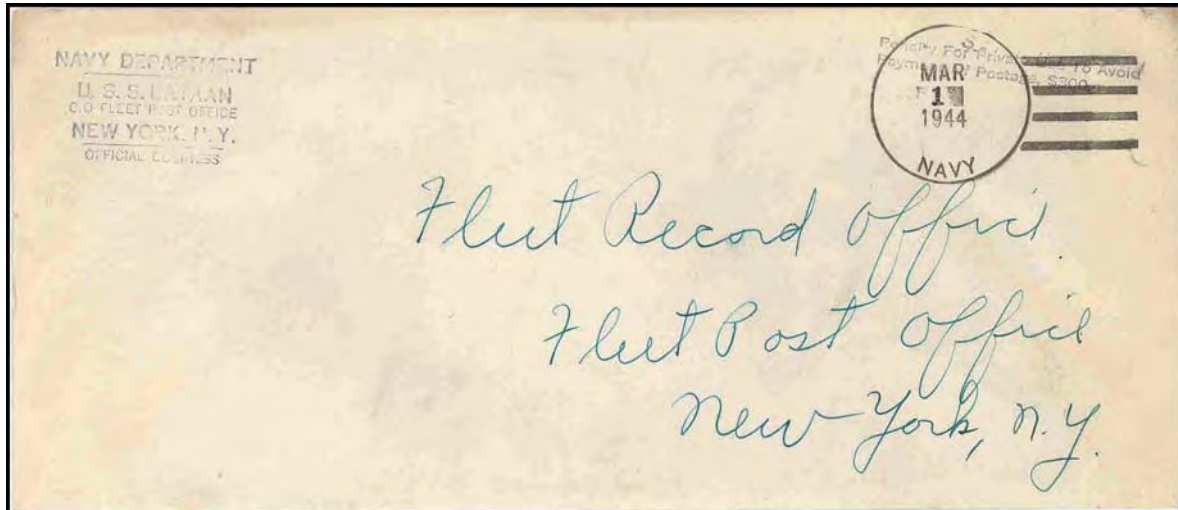 NAVY DEPARTMENT
U. S. S.
C.O FLEET POST OFFICE
NEW YORK, N.Y.
OFFICIAL BUSINESS
Penalty For Private Use To Avoid
Payment of Postage, $300
U. S.
MAR
1
1944
NAVY
Fleet Record Office
Fleet Post Office
New York, N.Y.